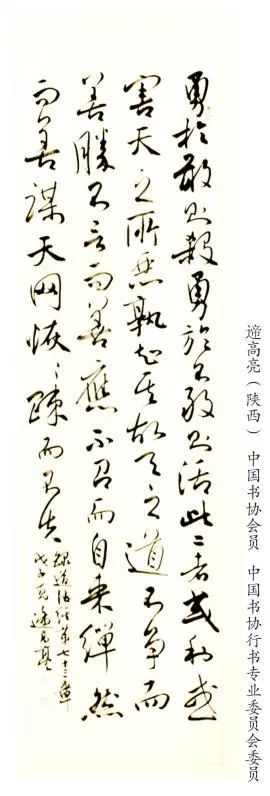 勇於敢则殺勇於不敢则活此二者或利或
害天之所惡孰知其故天之道不争而
善勝不言而善應不召而自来繟然
而善謀天网恢〻疎而不失
録道德经第七十三章
戊子夏遆高亮
遆高亮（陕西） 中国书协会员 中国书协行书专业委员会委员